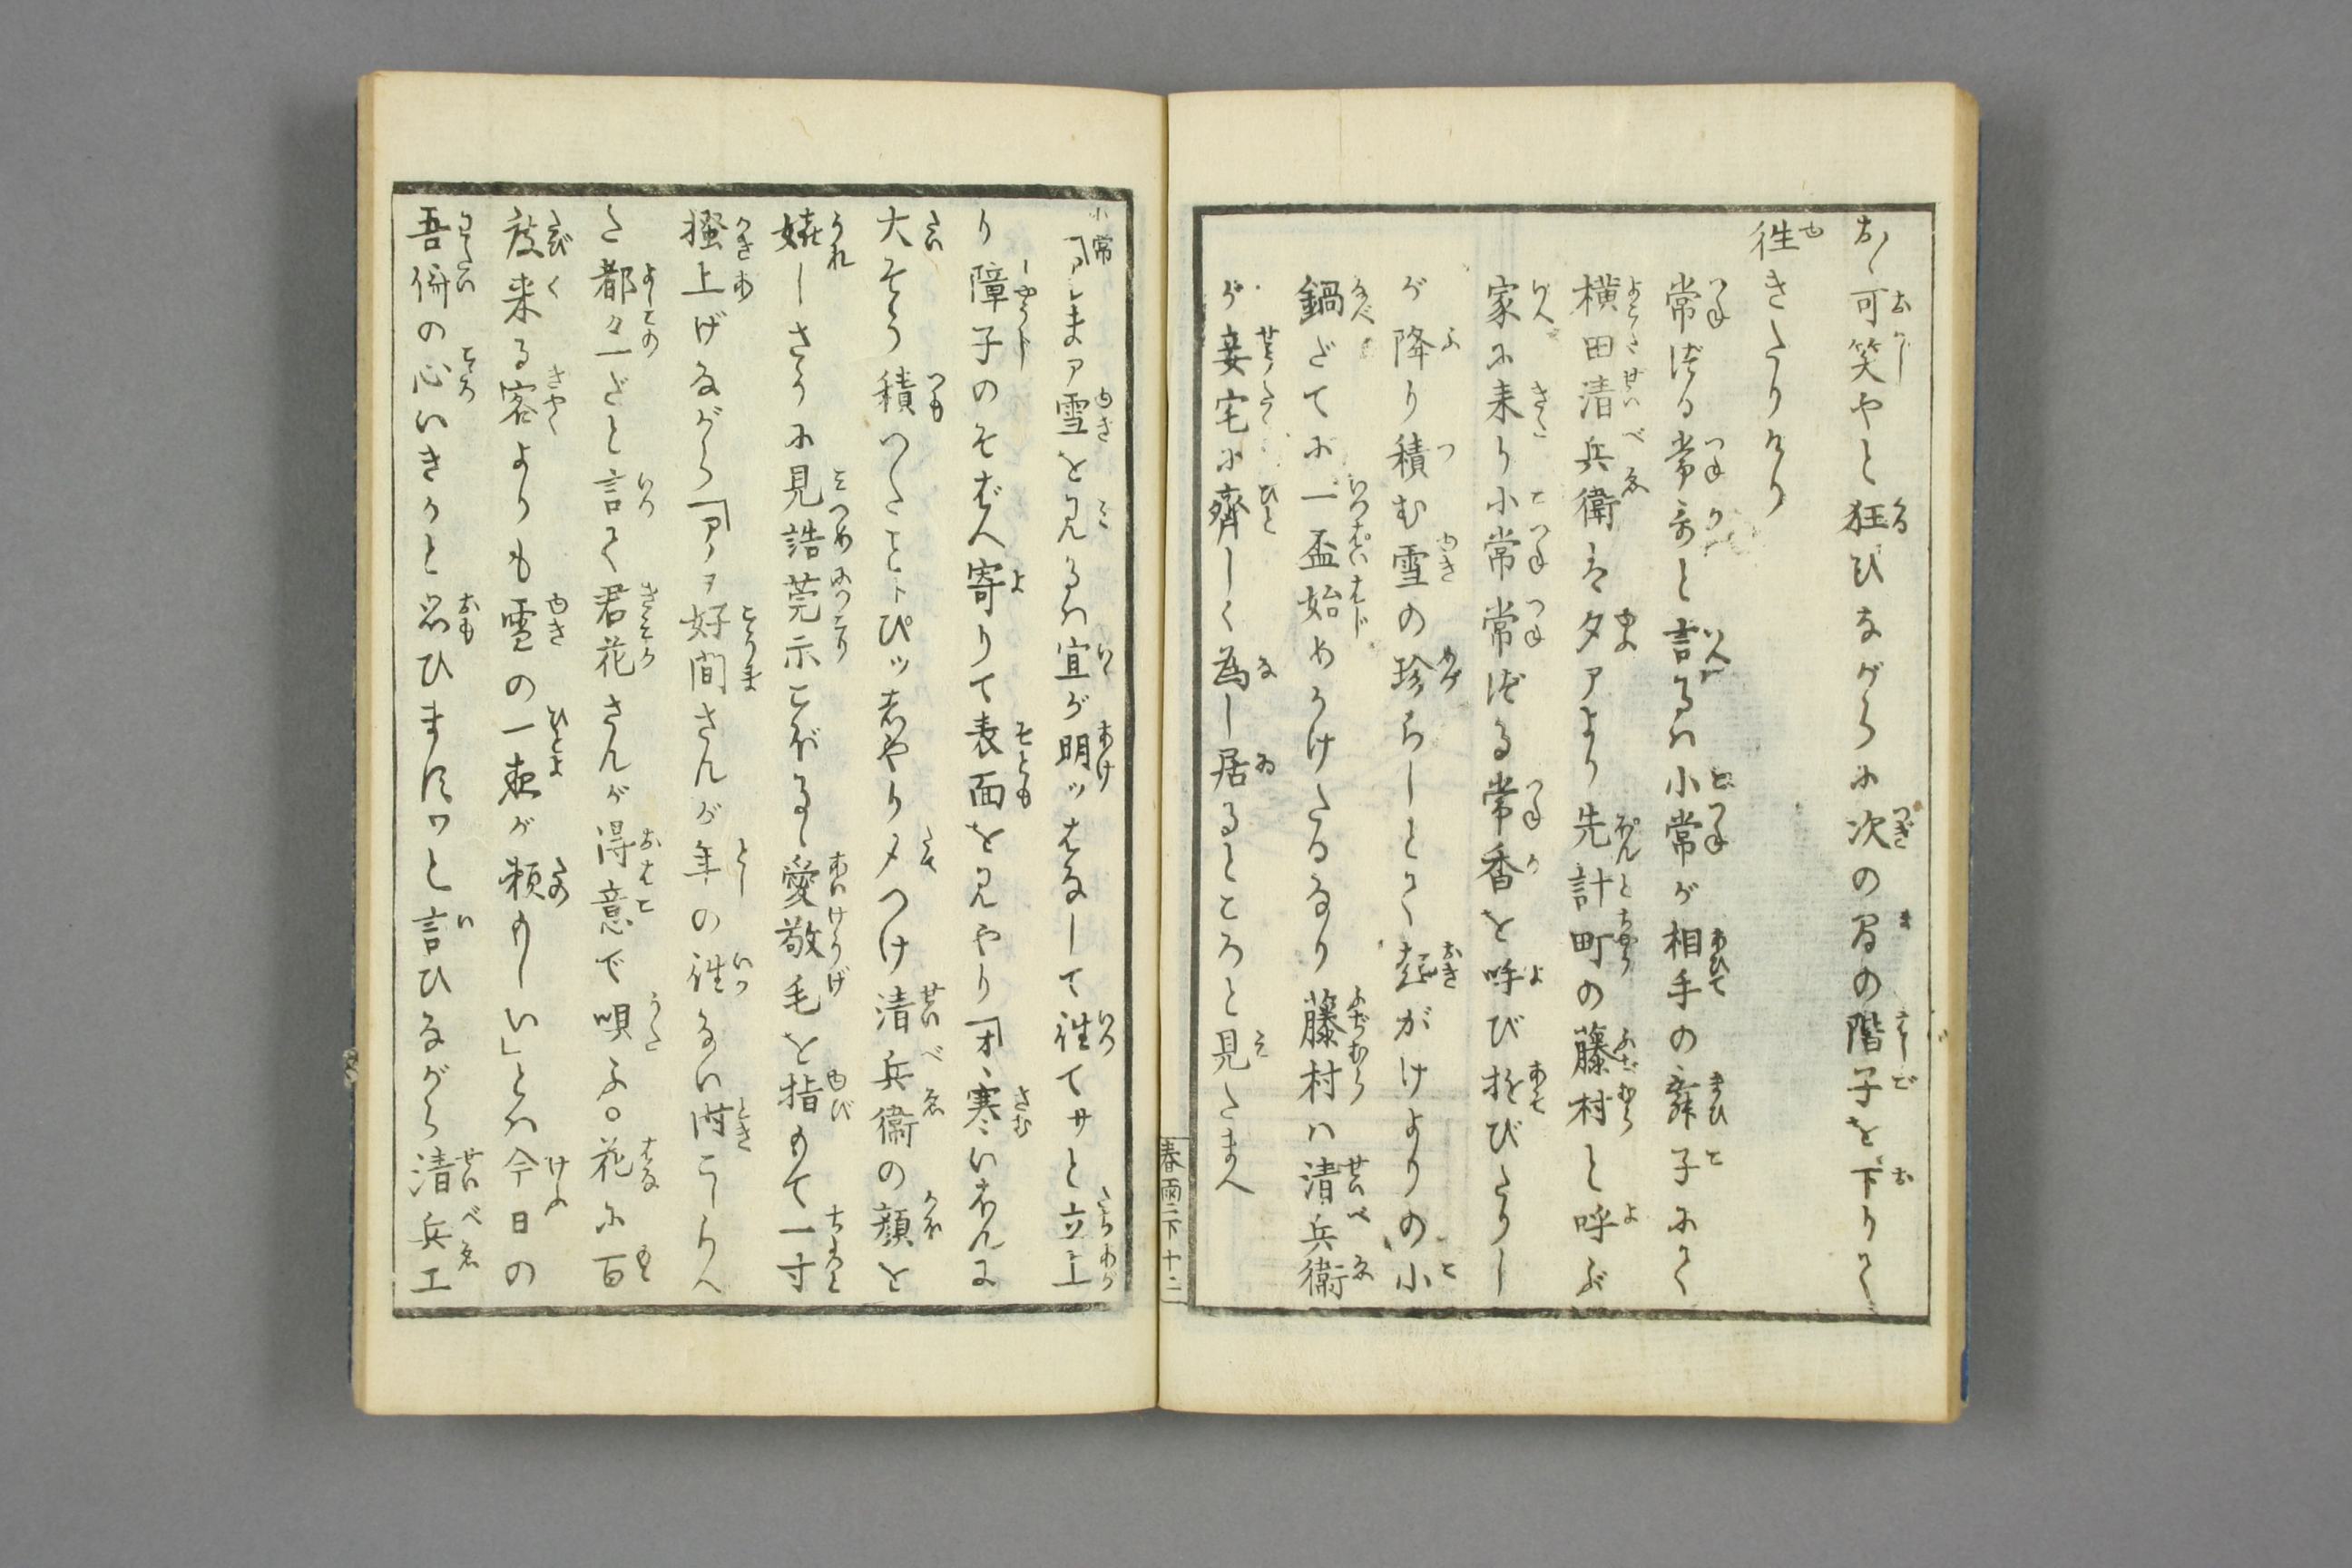 おゝ可笑やと狂びながらに次の間の階子を下りて
徃きたりけり
常浮る常香と言るハ小常が相手の舞子にて
横田清兵衛ハ夕アより先計町の藤村と呼ぶ
家に来り小常常浮る常香を呼び遊びたりし
が降り積む雪の珍らしとて起がけよりの小
鍋だてに一盃始めかけたるなり藤村ハ清兵衛
が妾宅に齊しく為し居るところと見たまへ
春雨二下十二
小常「アレまア雪を見るハ宜が明ッはなして徃てサと立上
り障子のそばへ寄りて表面を見やり「オヽ寒いねんよ
大そう積つたことトぴッしやり〆つけ清兵衛の顔を
嬉しさうに見詰莞示こぼるゝ愛敬毛を指もて一寸
掻上げながら「アノヲ好間さんが年の徃ない時こしらへ
た都々一だと言て君花さんが得意で唄ふ○花に百
度来る客よりも雪の一夜が頼もしい」とハ今日の
吾儕の心いきかと思ひますワと言ひながら清兵エ